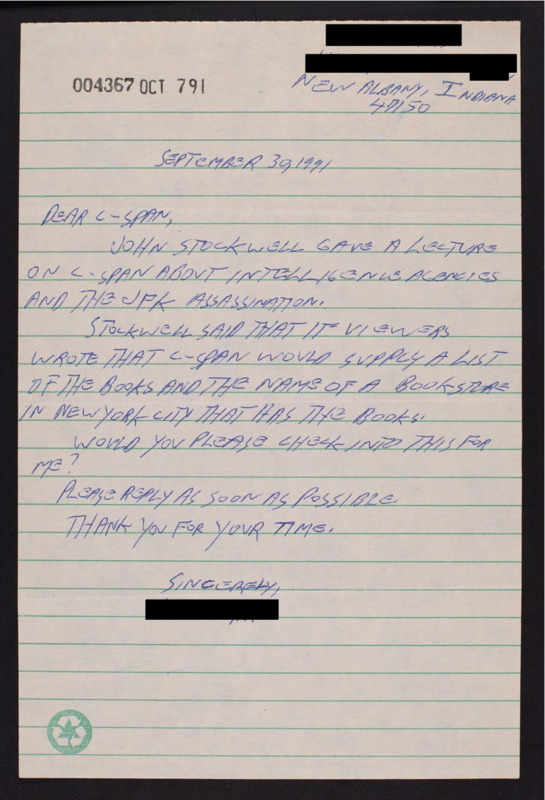 004367 OCT 791
NEW ALBANY, INDIANA
47150
SEPTEMBER 30, 1991
DEAR C-SPAN,
JOHN STOCKWELL GAVE A LECTURE
ON C-SPAN ABOUT INTELLIGENCE AGENCIES
AND THE JFK ASSASSINATION.
STOCKWELL SAID THAT IF VIEWERS
WROTE THAT C-SPAN WOULD SUPPLY A LIST
OF THE BOOKS AND THE NAME OF A BOOKSTORE
IN NEW YORK CITY THAT HAS THE BOOKS.
WOULD YOU PLEASE CHECK INTO THIS FOR
ME?
PLEASE REPLY AS SOON AS POSSIBLE.
THANK YOU FOR YOUR TIME.
SINCERELY,